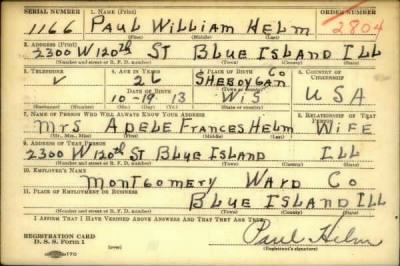 SERIAL NUMBER 1. NAME (Print) ORDER NUMBER
1166 PAUL WILLIAM HELM 2804
(First) (Middle) (Last)
2. ADDRESS (Print)
2300 W 120th ST BLUE ISLAND ILL
(Number and street or R. F. D. number) (Town) (County) (State)
3. TELEPHONE 4. AGE IN YEARS 5. PLACE OF BIRTH 6. COUNTRY OF CITIZENSHIP
26 SHEBOYGAN CO
DATE OF BIRTH
10-19-13 WIS USA
(Mo.) (Day) (Yr.)
7. NAME OF PERSON WHO WILL ALWAYS KNOW YOUR ADDRESS 8. RELATIONSHIP OF THAT PERSON
MRS ADELE FRANCES HELM WIFE
(Mr., Mrs., Miss) (First) (Middle) (Last)
9. ADDRESS OF THAT PERSON
2300 W 120th ST BLUE ISLAND ILL
(Number and street or R. F. D. number) (Town) (County) (State)
10. EMPLOYER'S NAME
MONTGOMERY WARD CO
11. PLACE OF EMPLOYMENT OR BUSINESS
BLUE ISLAND ILL
(Number and street or R. F. D. number) (Town) (County) (State)
I AFFIRM THAT I HAVE VERIFIED ABOVE ANSWERS AND THAT THEY ARE TRUE.
REGISTRATION CARD
D. S. S. Form 1
Paul Helm
(Registrant's signature)